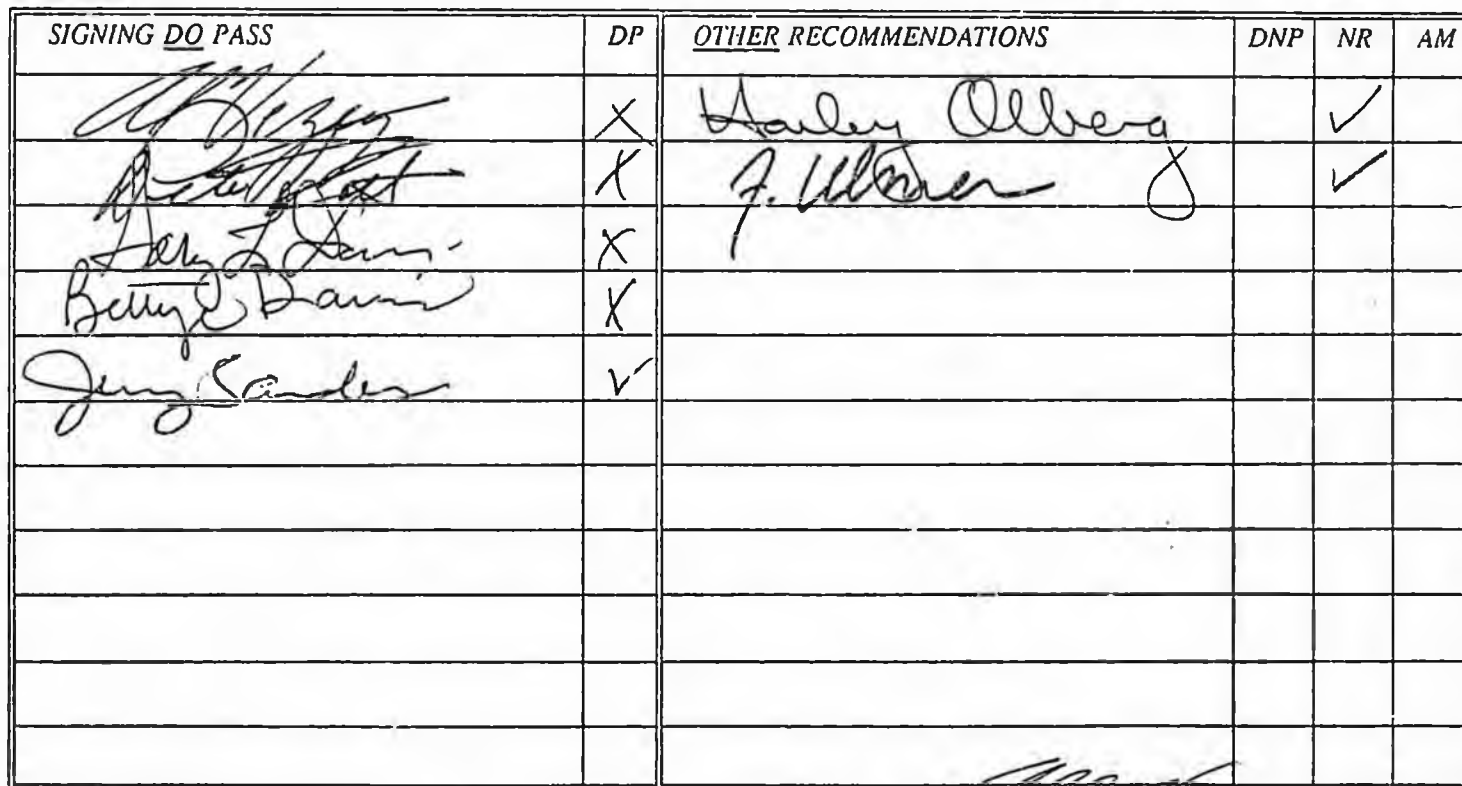 SIGNING DO PASS DP OTHER RECOMMENDATIONS DNP NR AM
X Harley Olberg ✓
X F. Ulmer ✓
X
Betty Davis X
Jerry Sanders ✓